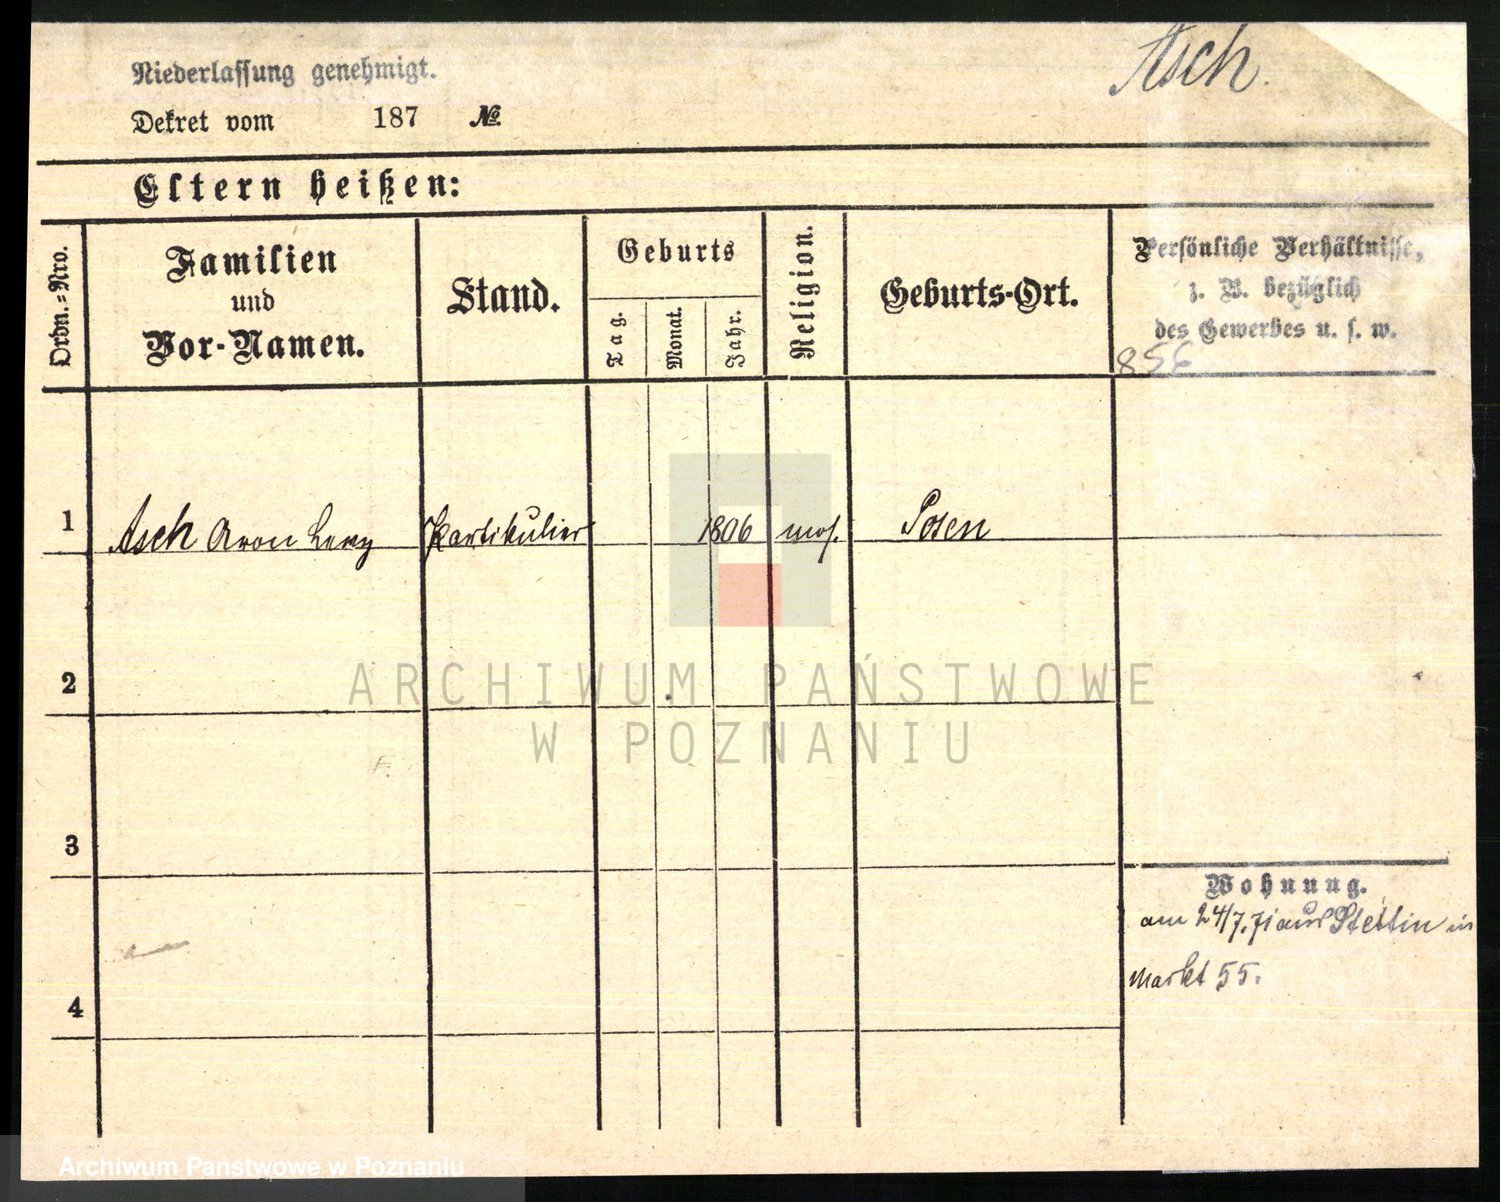 Asch.
Niederlassung genehmigt.
Dekret vom 187 №
Eltern heißen:
Ordn.=Nro.
Familien
und
Vor-Namen.
Stand.
Geburts
Tag.
Monat.
Jahr.
Religion.
Geburts-Ort.
Persönliche Verhältnisse,
z. B. bezüglich
des Gewerbes u. s. w.
1 Asch Aron Levy Partikulier 1806 mos. Posen
2
ARCHIWUM PAŃSTWOWE
W POZNANIU
3
Wohnung.
am 24/7. 71 aus Stettin in
Markt 55.
4
Archiwum Państwowe w Poznaniu